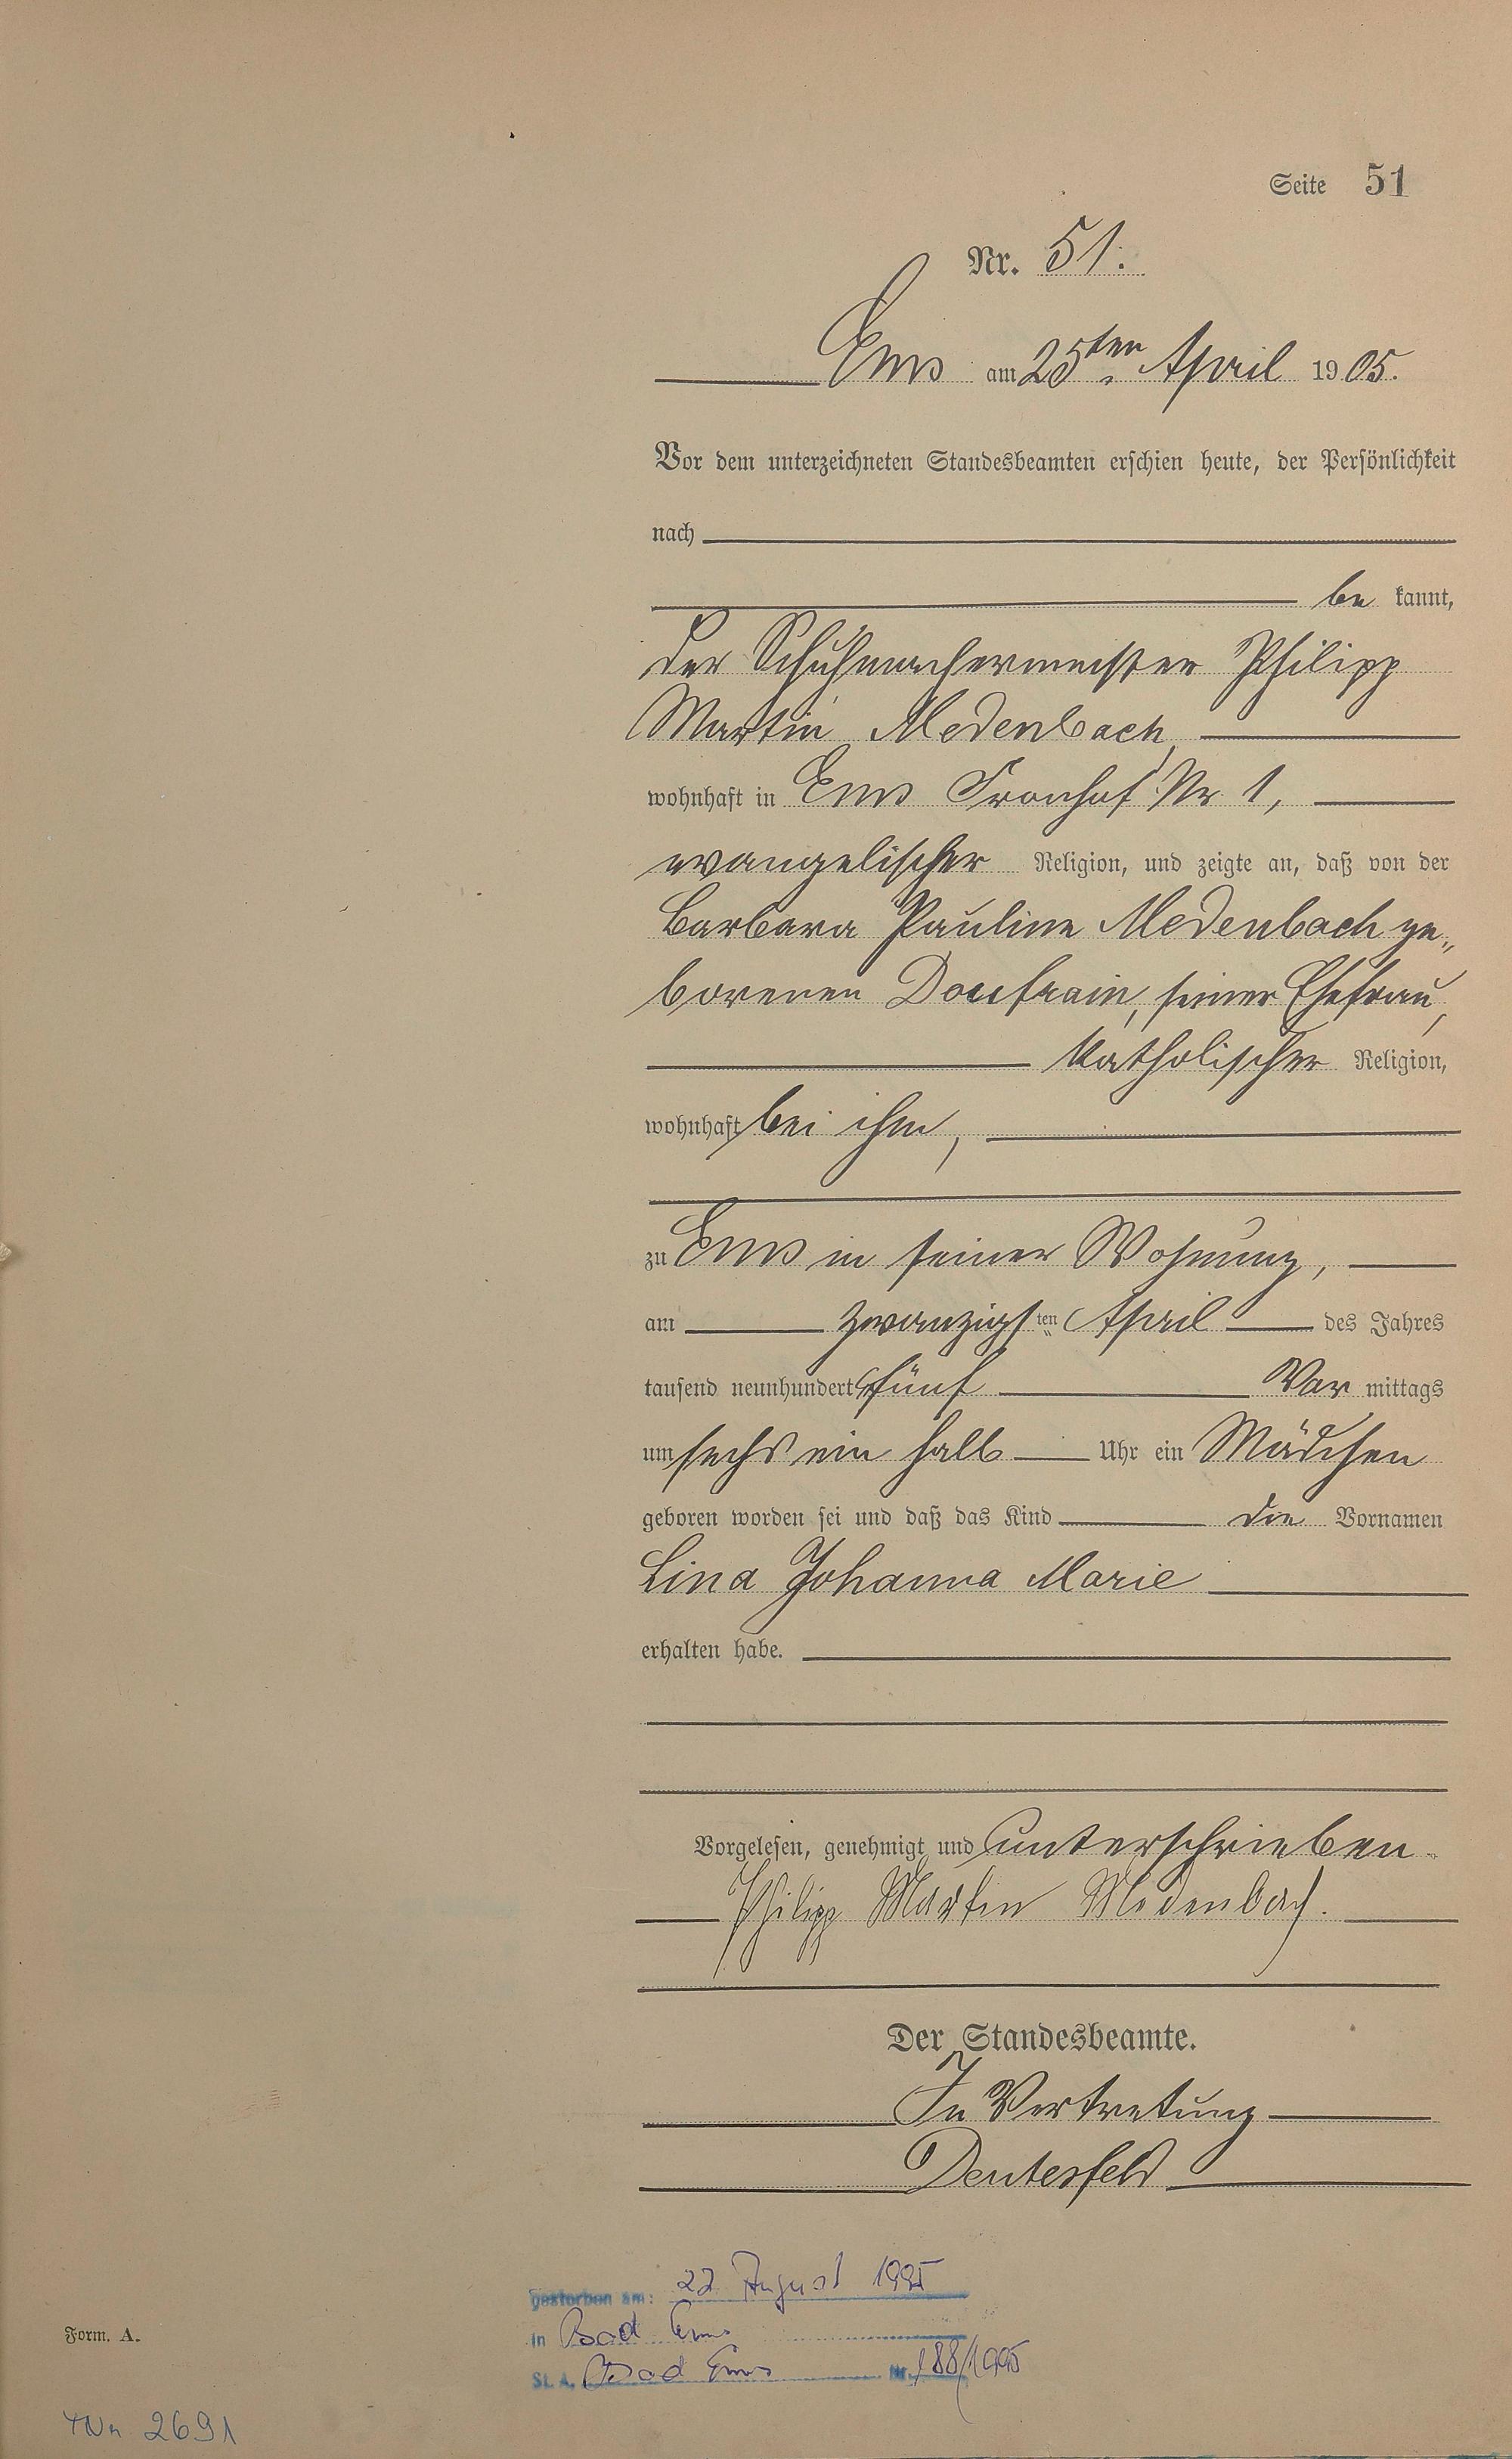 Seite 51
Nr. 51.
Ems am 25ten April 1905.
Vor dem unterzeichneten Standesbeamten erschien heute, der Persönlichkeit
nach
be kannt,
der Schuhmachermeister Philipp
Martin Medenbach,
wohnhaft in Ems Fronhof Nr 1,
evangelischer Religion, und zeigte an, daß von der
Barbara Pauline Medenbach ge„
borenen Doufrain, seiner Ehefrau,
katholischer Religion,
wohnhaft bei ihm,
zu Ems in seiner Wohnung,
am zwanzigsten April des Jahres
tausend neunhundert fünf Vor mittags
um sechs ein halb Uhr ein Mädchen
geboren worden sei und daß das Kind die Vornamen
Lina Johanna Marie
erhalten habe.
Vorgelesen, genehmigt und unterschrieben.
Philipp Martin Medenbach.
Der Standesbeamte.
In Vertretung
Deutesfeld
gestorben am: 22. August 1995
in Bad Ems
St. A. Bad Ems Nr. 188/1995
Form. A.
2691